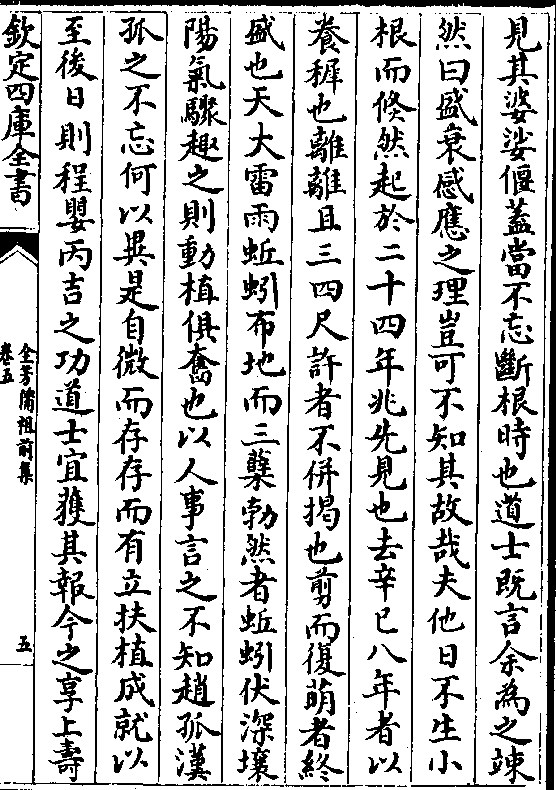 見其婆娑偃蓋當不忘斷根時也道士既言余為之竦
然曰盛衰感應之理豈可不知其故哉夫他日不生小
根而倏然起於二十四年兆先見也去辛巳八年者以
養穉也離離且三四尺許者不併揭也剪而復萌者終
盛也天大雷雨蚯蚓布地而三蘖勃然者蚯蚓伏深壤
陽氣驟趣之則動植俱奮也以人事言之不知趙孤漢
孤之不忘何以異是自微而存存而有立扶植成就以
至後日則程嬰丙吉之功道士宜獲其報今之享上壽
欽定四庫全書
全芳備祖前集
卷五
五